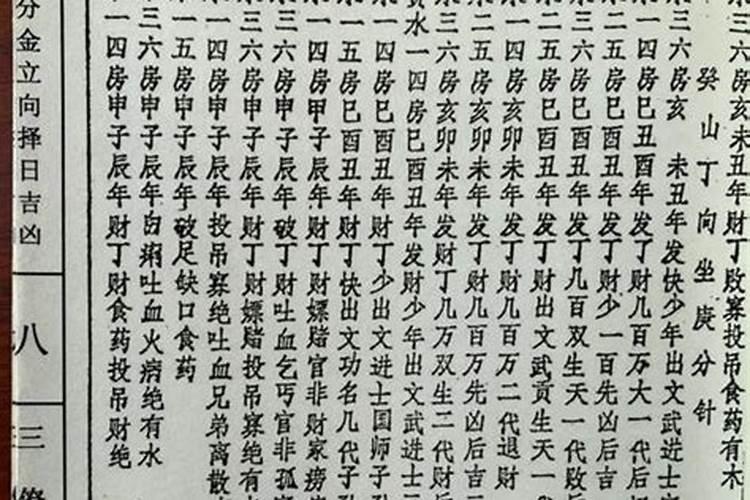 三六房亥未丑年财丁败寡投吊食药有木
癸山丁向坐庚分针
水三六房亥 未丑年发快少年出文武进士
一四房巳丑酉年发了财几百万大一代后
二五房巳酉丑年发丁财少一百先凶后吉
三六房巳酉丑年发丁几百双生天一代败后
二五房巳酉丑年发丁财出文武贡生天一
一四房亥卯未年发丁财几百万二代退财
二五房亥卯未年发丁财几百万先凶后吉
三六房亥卯未年发财丁几万双生二代财后
水一四房巳酉丑年发财少年出文武进士
一四房巳酉丑年财丁少出文进士国师子
一五房巳酉丑年财丁快出文功名几代子
一四房甲子辰年财丁财嫖赌官非财家痨
三六房申子辰年破丁财吐血乞丐官非孤
三六房申子辰年财丁财嫖赌投吊寡绝有
一四房申子辰年投吊寡绝吐血兄弟离散
一五房申子辰年破足缺口食药
三六房申子辰年白痢吐血火病绝有水
一四房申子辰年财丁财食药投吊财绝
分金立向择日吉凶
八
三